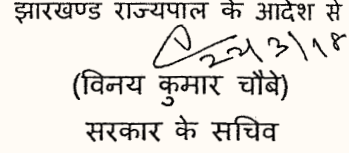 झारखण्ड राज्यपाल के आदेश से
22/3/18
(विनय कुमार चौबे)
सरकार के सचिव